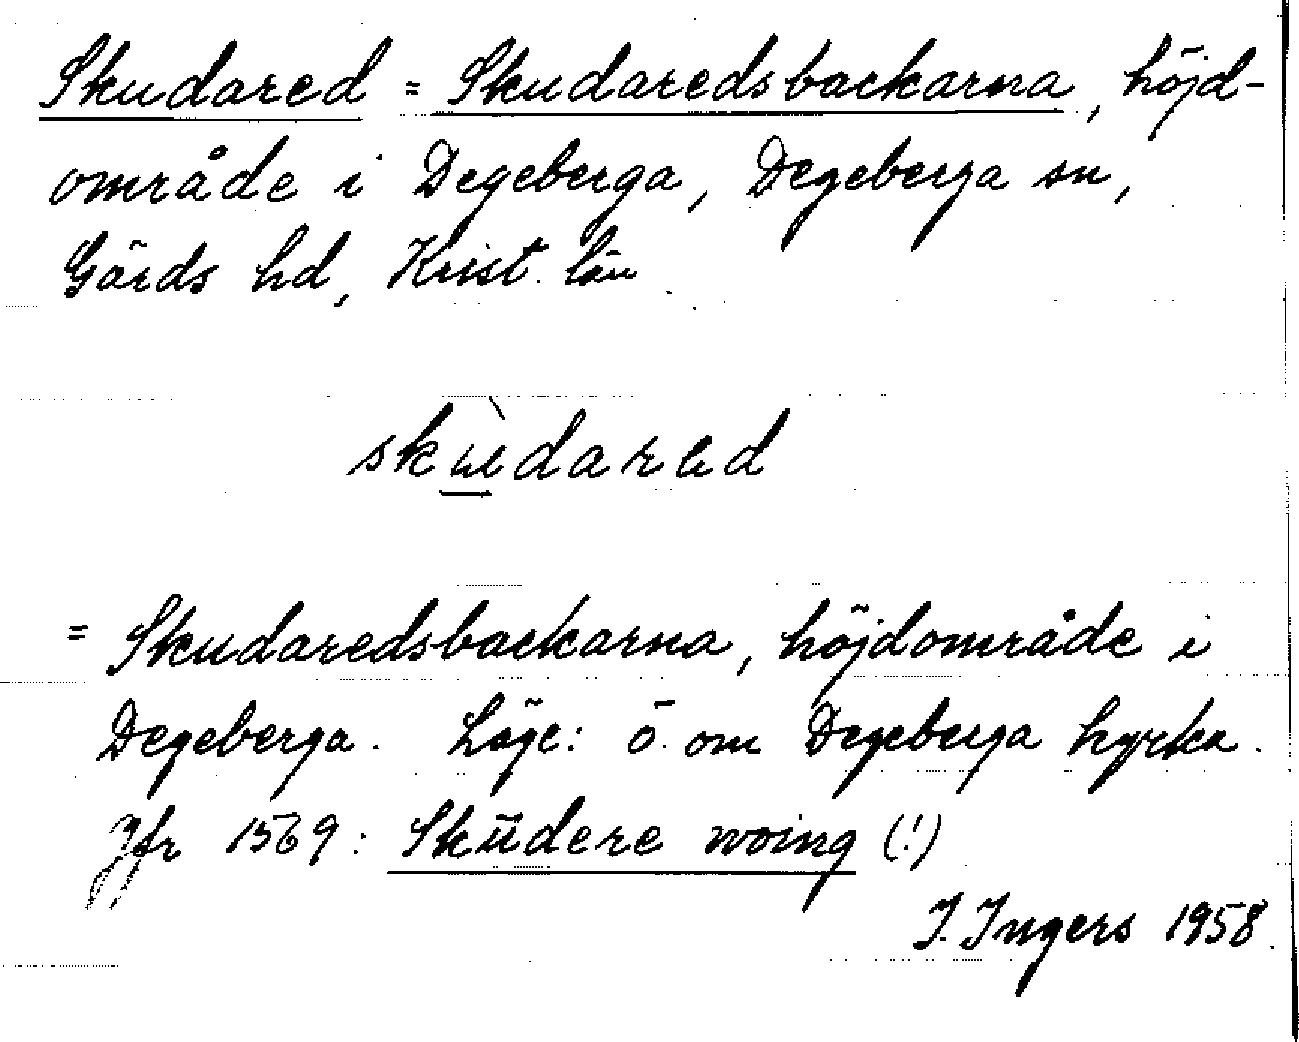 Skudared = Skudaredsbackarna, höjd-
område i Degeberga, Degeberga sn,
Gärds hd, Krist. län
skùdared
= Skudaredsbackarna, höjdområde i
Degeberga. Läge: ö. om Degeberga kyrka.
Jfr 1569: Skŭdere woing (!)
I. Ingers 1958.